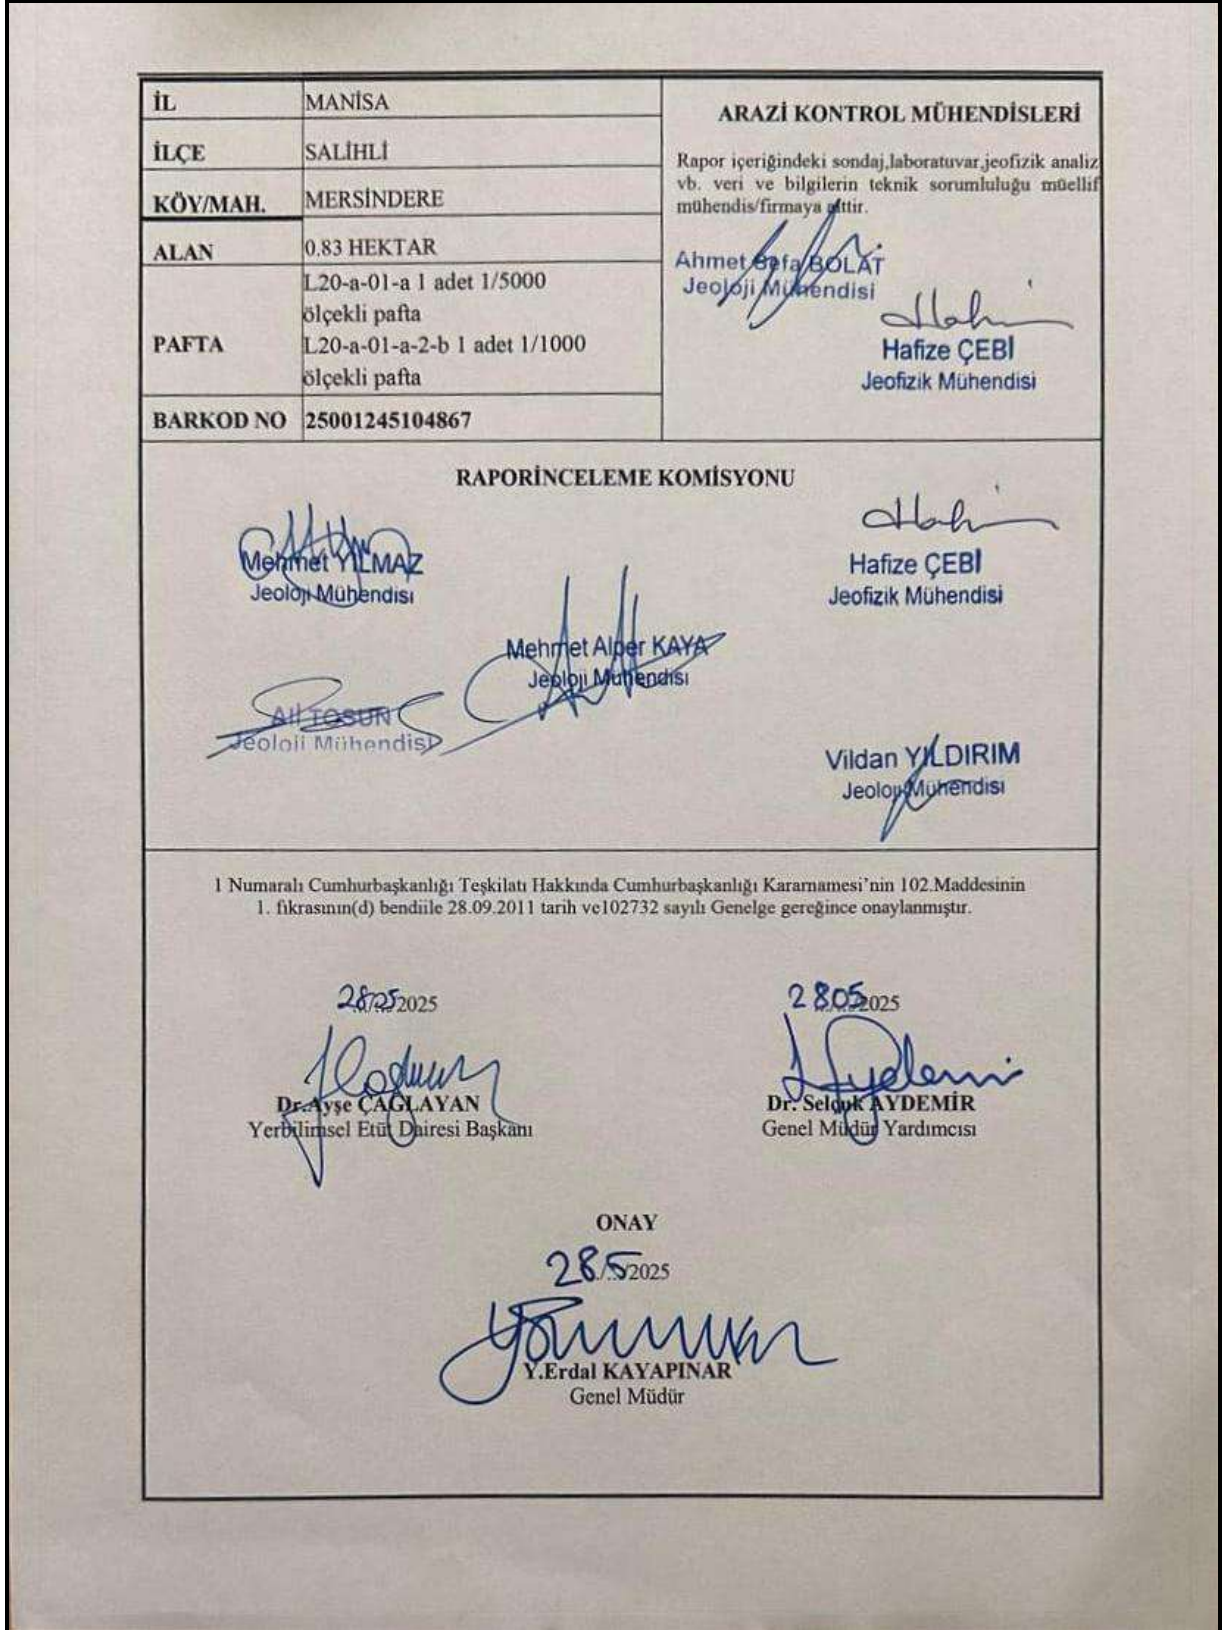 İL MANİSA
İLÇE SALİHLİ
KÖY/MAH. MERSİNDERE
ALAN 0.83 HEKTAR
PAFTA L20-a-01-a 1 adet 1/5000
ölçekli pafta
L20-a-01-a-2-b 1 adet 1/1000
ölçekli pafta
BARKOD NO 25001245104867
ARAZİ KONTROL MÜHENDİSLERİ
Rapor içeriğindeki sondaj,laboratuvar,jeofizik analiz
vb. veri ve bilgilerin teknik sorumluluğu müellif
mühendis/firmaya aittir.
Ahmet Sefa BOLAT
Jeoloji Mühendisi
Hafize ÇEBİ
Jeofizik Mühendisi
RAPORİNCELEME KOMİSYONU
Mehmet YILMAZ
Jeoloji Mühendisi
Hafize ÇEBİ
Jeofizik Mühendisi
Mehmet Alper KAYA
Jeoloji Mühendisi
Ali TOSUN
Jeoloji Mühendisi
Vildan YILDIRIM
Jeoloji Mühendisi
1 Numaralı Cumhurbaşkanlığı Teşkilatı Hakkında Cumhurbaşkanlığı Kararnamesi’nin 102.Maddesinin
1. fıkrasının(d) bendiile 28.09.2011 tarih ve102732 sayılı Genelge gereğince onaylanmıştır.
28/05/2025
Dr.Ayşe ÇAĞLAYAN
Yerbilimsel Etüt Dairesi Başkanı
28.05.2025
Dr. Selçuk AYDEMİR
Genel Müdür Yardımcısı
ONAY
28./.5/2025
Y.Erdal KAYAPINAR
Genel Müdür